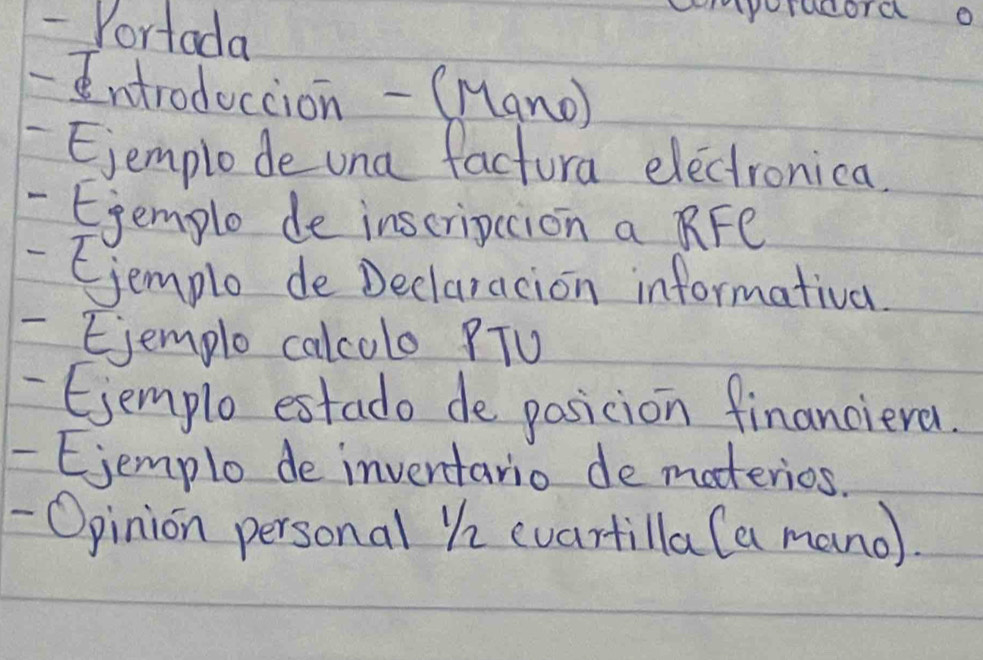 - Portada
- Introducción - (Mano)
- Ejemplo de una factura electronica.
- Ejemplo de inscripcción a RFC
- Ejemplo de Declaración informativa.
- Ejemplo calculo PTU
- Ejemplo estado de posición financiera.
- Ejemplo de inventario de materios.
- Opinión personal 1/2 cuartilla (a mano).